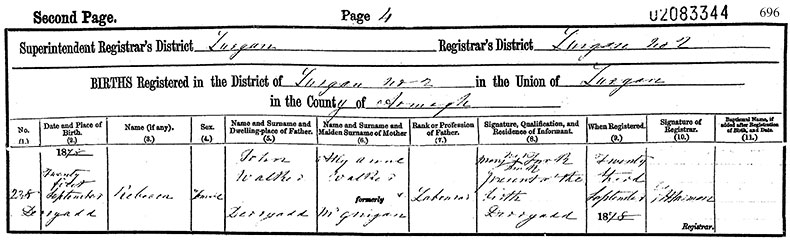 Second Page. Page 4 02083344 696
Superintendent Registrar's District Lurgan Registrar's District Lurgan No 2
BIRTHS Registered in the District of Lurgan No 2 in the Union of Lurgan
in the County of Armagh
No. Date and Place of Birth. Name (if any). Sex. Name and Surname and Dwelling-place of Father. Name and Surname and Maiden Surname of Mother Rank or Profession of Father. Signature, Qualification, and Residence of Informant. When Registered. Signature of Registrar. Baptismal Name, if added after Registration of Birth, and Date.
(1.) (2.) (3.) (4.) (5.) (6.) (7.) (8.) (9.) (10.) (11.)
1878 John Anne Mary Twenty
Twenty first Walker Walker present at the third
238 September Rebecca formerly Labourer birth September
Derryadd Derryadd McGuigan Derryadd 1878 Registrar.